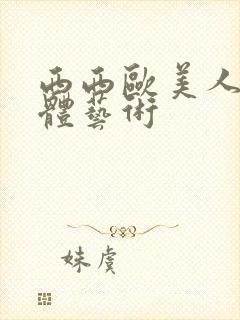 西西歐美人
體藝術
妹虞